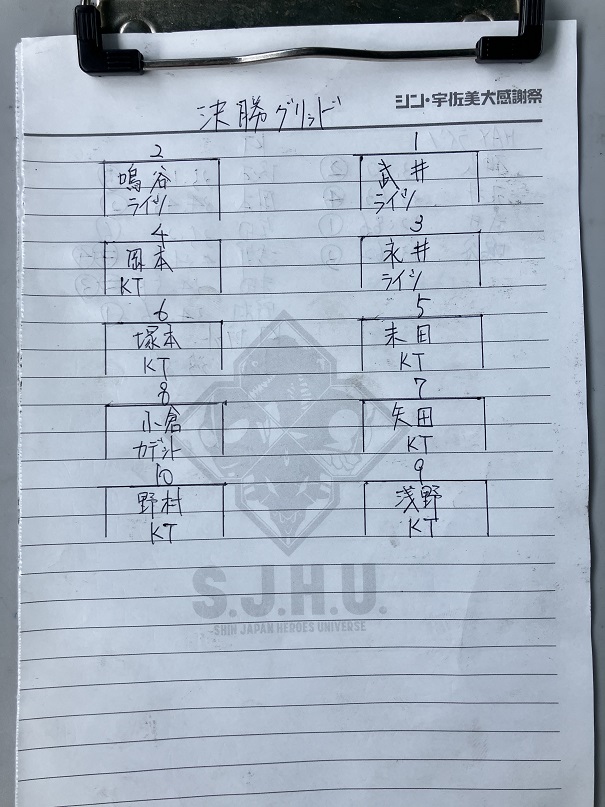 シン・宇佐美大感謝祭
決勝グリッド
2
鳴谷
ライツ
1
武井
ライツ
4
岡本
KT
3
永井
ライツ
6
塚本
KT
5
末田
KT
8
小倉
カデット
7
矢田
KT
10
野村
KT
9
浅野
KT
S.J.H.U.
-SHIN JAPAN HEROES UNIVERSE